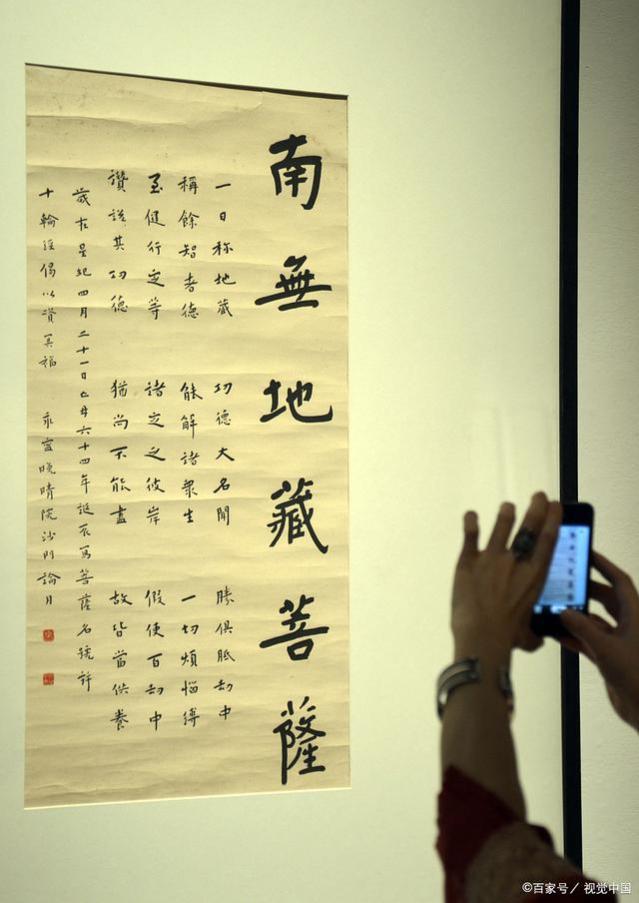 南無地藏菩薩
一日称地藏 功德大名聞 勝俱胝劫中
稱餘智者德 能解諸衆生 一切煩惱縛
至健行定等 諸定之彼岸 假使百劫中
讚說其功德 猶尚不能盡 故皆當供養
歲在星紀四月二十一日亡母六十四年誕辰寫菩薩名號并
十輪經偈以資冥福 永寧晚晴院沙門論月
©百家号／视觉中国